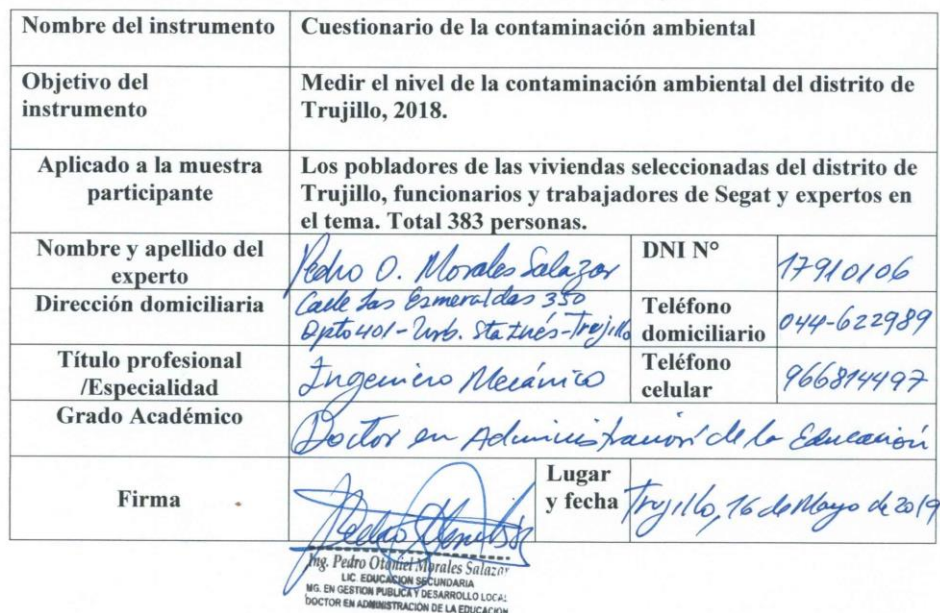 Nombre del instrumento
Cuestionario de la contaminación ambiental
Objetivo del
instrumento
Medir el nivel de la contaminación ambiental del distrito de
Trujillo, 2018.
Aplicado a la muestra
participante
Los pobladores de las viviendas seleccionadas del distrito de
Trujillo, funcionarios y trabajadores de Segat y expertos en
el tema. Total 383 personas.
Nombre y apellido del
experto
Pedro O. Morales Salazar
DNI N°
17910106
Dirección domiciliaria
Calle Las Esmeraldas 350
Dpto 401 - Urb. Sta Inés - Trujillo
Teléfono
domiciliario
044-622989
Título profesional
/Especialidad
Ingeniero Mecánico
Teléfono
celular
966814497
Grado Académico
Doctor en Administración de la Educación
Firma
Lugar
y fecha
Trujillo, 16 de Mayo de 2019
Ing. Pedro Otoniel Morales Salazar
LIC. EDUCACION SECUNDARIA
MG. EN GESTION PUBLICA Y DESARROLLO LOCAL
DOCTOR EN ADMINISTRACIÓN DE LA EDUCACION